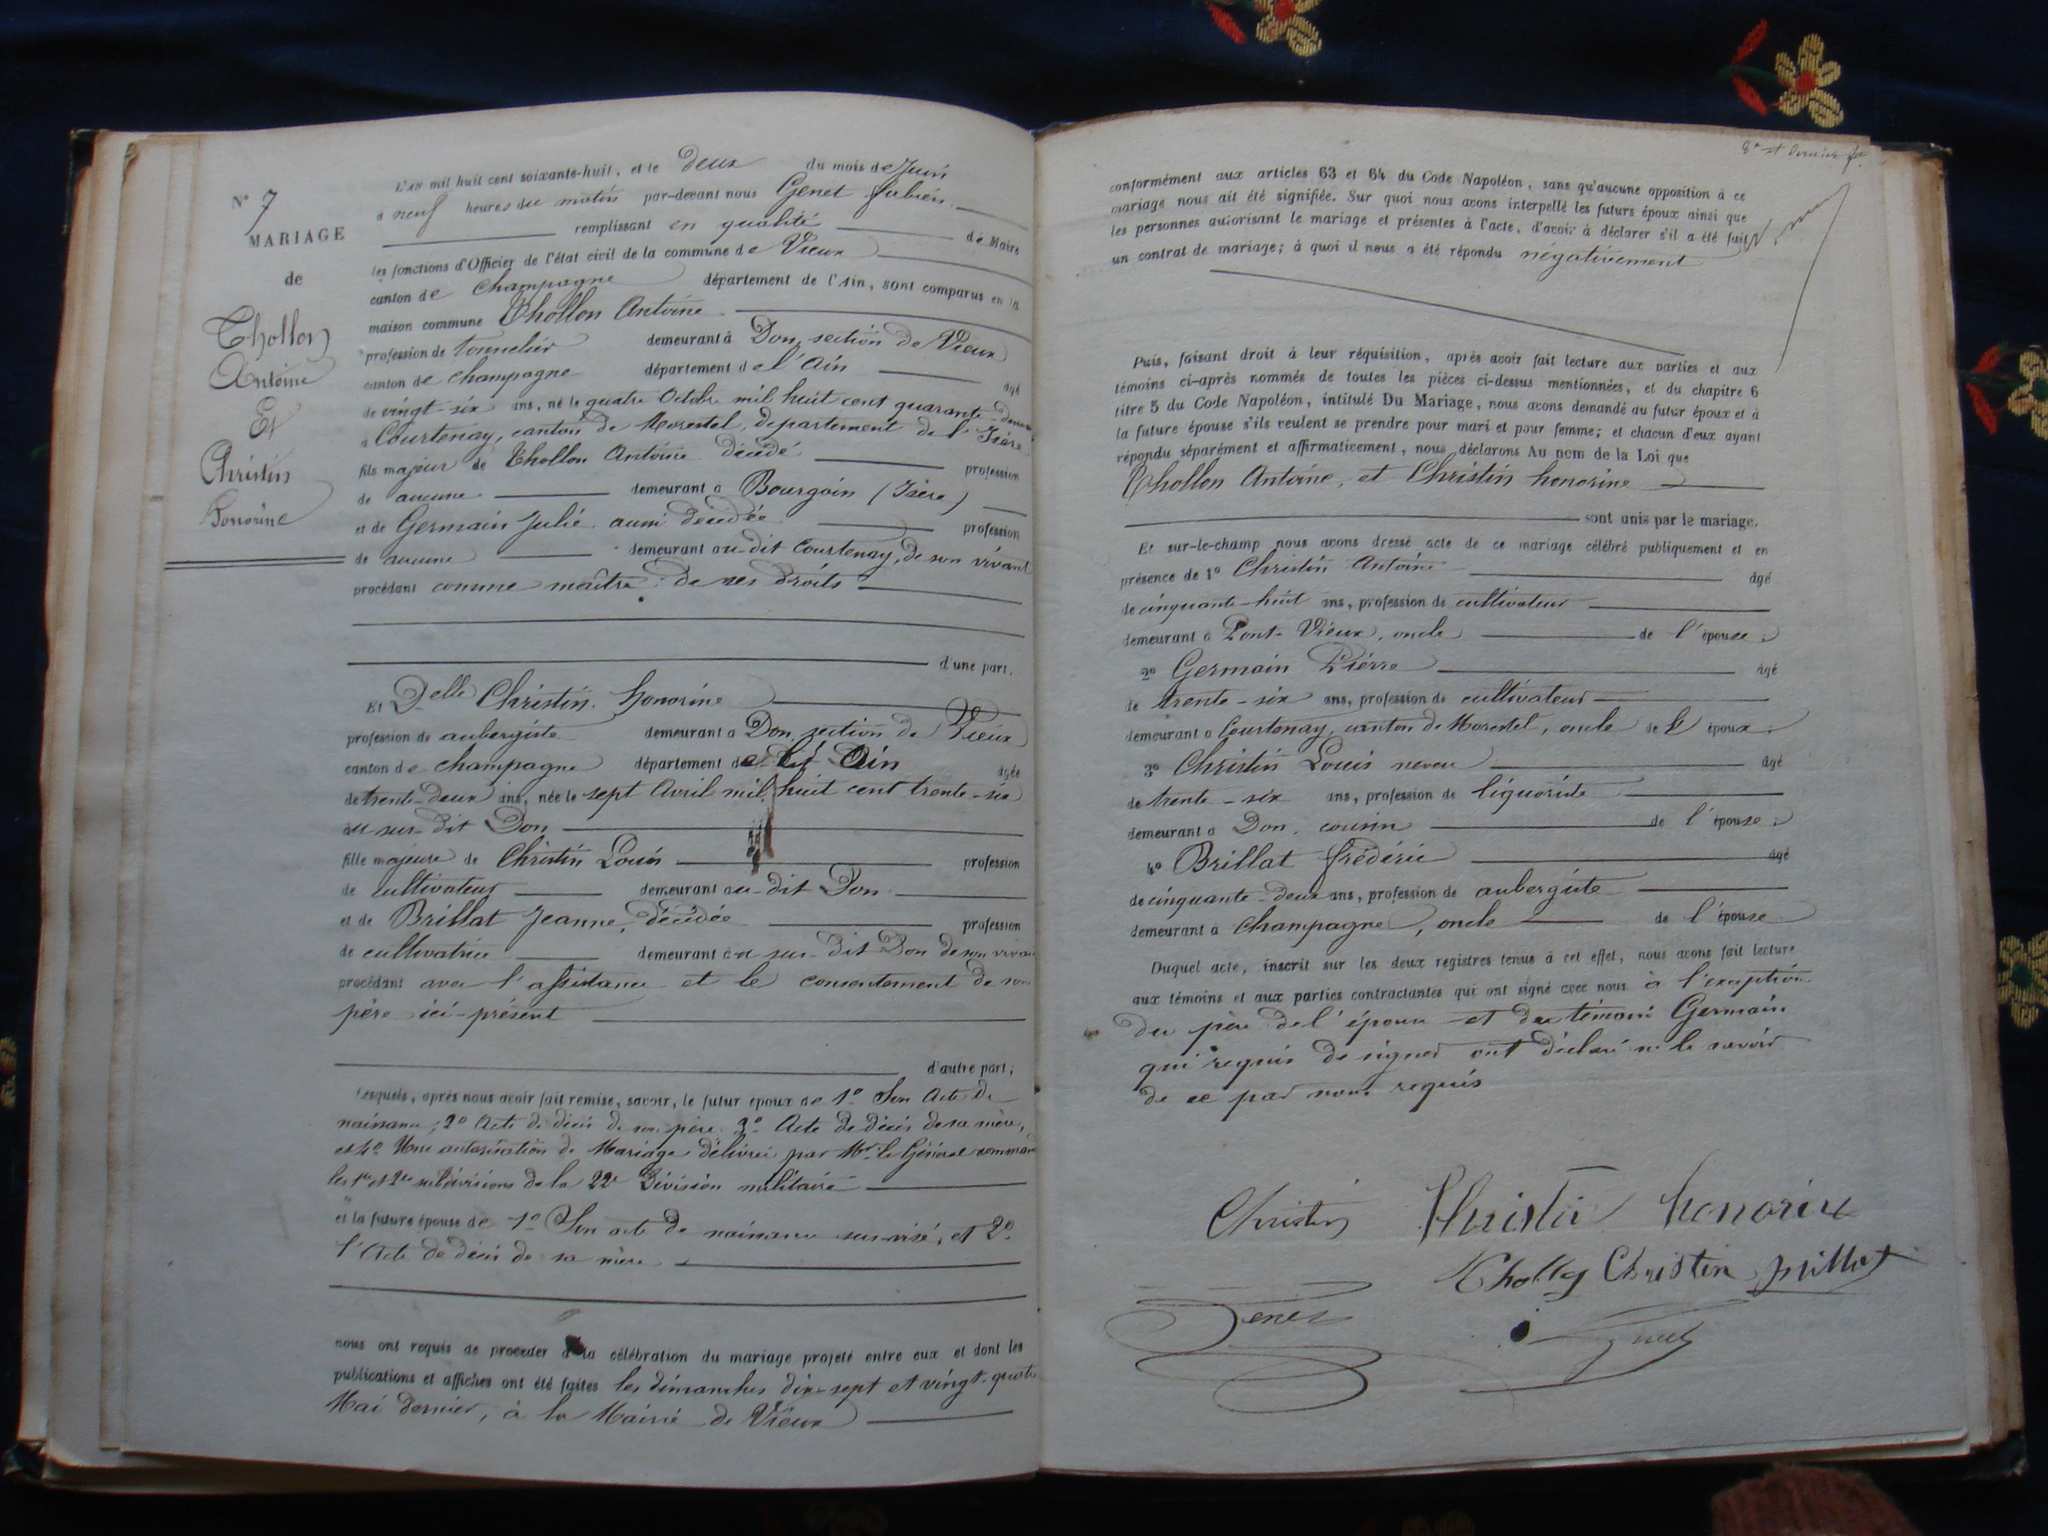 N° 7
MARIAGE
de
Thollon
Antoine
Et
Christin
honorine
L'AN mil huit cent soixante-huit, et le deux du mois de Juin
à neuf heures du matin par-devant nous Genet Fabien
remplissant en qualité de Maire
les fonctions d'Officier de l'état civil de la commune de Vieux
canton de Champagne département de l'Ain, sont comparus en la
maison commune Thollon Antoine
profession de tonnelier demeurant à Don, section de Vieux
canton de Champagne département de l'Ain âgé
de vingt-six ans, né le quatre Octobre mil huit cent quarante-deux
à Courtenay, canton de Morestel, département de l'Isère
fils majeur de Thollon Antoine décédé profession
de aucune demeurant à Bourgoin (Isère)
et de Germain Julie aussi décédée profession
de aucune demeurant au dit Courtenay, de son vivant
procédant comme maître de ses droits
d'une part.
Et Delle Christin honorine
profession de aubergiste demeurant à Don, section de Vieux
canton de Champagne département de l'Ain âgée
de trente-deux ans, née le sept Avril mil huit cent trente-six
au sus-dit Don
fille majeure de Christin Louis profession
de cultivateur demeurant au-dit Don
et de Brillat Jeanne, décédée profession
de cultivatrice demeurant au sus-dit Don de son vivant
procédant avec l'assistance et le consentement de son
père ici-présent
d'autre part;
Lesquels, après nous avoir fait remise, savoir, le futur époux de 1° Son Acte de
naissance; 2° Acte de décès de son père 3° Acte de décès de sa mère,
et 4° Une autorisation de Mariage délivrée par Mr le Général command
les 1re et 2e subdivisions de la 22e Division militaire
et la future épouse de 1° Son acte de naissance sus-visé, et 2°
l'Acte de décès de sa mère
nous ont requis de procéder à la célébration du mariage projeté entre eux et dont les
publications et affiches ont été faites les dimanches dix-sept et vingt-quatre
Mai dernier, à la Mairie de Vieux
8e et dernier
conformément aux articles 63 et 64 du Code Napoléon, sans qu'aucune opposition à ce
mariage nous ait été signifiée. Sur quoi nous avons interpellé les futurs époux ainsi que
les personnes autorisant le mariage et présentes à l'acte, d'avoir à déclarer s'il a été fait
un contrat de mariage; à quoi il nous a été répondu négativement
Puis, faisant droit à leur réquisition, après avoir fait lecture aux parties et aux
témoins ci-après nommés de toutes les pièces ci-dessus mentionnées, et du chapitre 6
titre 5 du Code Napoléon, intitulé Du Mariage, nous avons demandé au futur époux et à
la future épouse s'ils veulent se prendre pour mari et pour femme; et chacun d'eux ayant
répondu séparément et affirmativement, nous déclarons Au nom de la Loi que
Thollon Antoine, et Christin honorine
sont unis par le mariage.
Et sur-le-champ nous avons dressé acte de ce mariage célébré publiquement et en
présence de 1° Christin Antoine âgé
de cinquante-huit ans, profession de cultivateur
demeurant à Pont-Vieux, oncle de l'épouse
2° Germain Pierre âgé
de trente-six ans, profession de cultivateur
demeurant à Courtenay, canton de Morestel, oncle de l'époux
3° Christin Louis neveu âgé
de trente-six ans, profession de liquoriste
demeurant à Don, cousin de l'épouse
4° Brillat frédéric âgé
de cinquante-deux ans, profession de aubergiste
demeurant à Champagne, oncle de l'épouse
Duquel acte, inscrit sur les deux registres tenus à cet effet, nous avons fait lecture
aux témoins et aux parties contractantes qui ont signé avec nous à l'exception
du père de l'épouse et du témoin Germain
qui requis de signer ont déclaré ne le savoir
de ce par nous requis
Christin Christin honorine
Thollon Christin Brillat
Genet